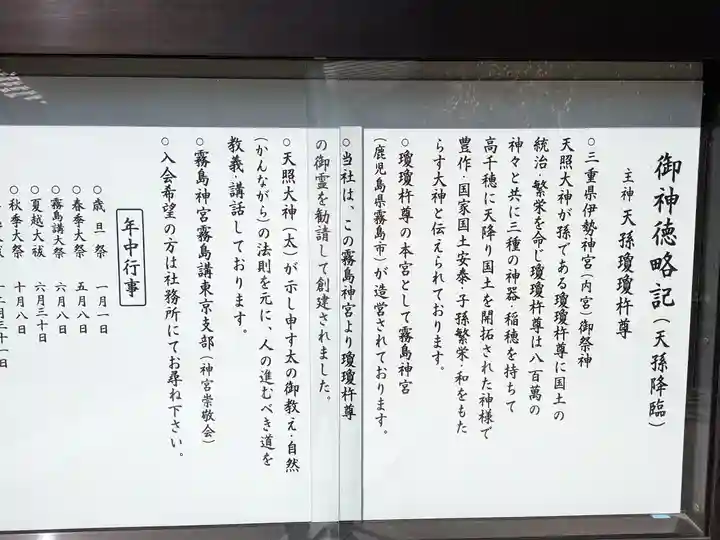 御神徳略記(天孫降臨)
主神 天孫瓊瓊杵尊
○三重県伊勢神宮(内宮)御祭神
天照大神が孫である瓊瓊杵尊に国土の
統治・繁栄を命じ瓊瓊杵尊は八百萬の
神々と共に三種の神器・稲穂を持ちて
高千穂に天降り国土を開拓された神様で
豊作・国家国土安泰・子孫繁栄・和をもた
らす大神と伝えられております。
○瓊瓊杵尊の本宮として霧島神宮
(鹿児島県霧島市)が造営されております。
○当社は、この霧島神宮より瓊瓊杵尊
の御霊を勧請して創建されました。
○天照大神(太)が示し申す太の御教え・自然
(かんながら)の法則を元に、人の進むべき道を
教義・講話しております。
○霧島神宮霧島講東京支部(神宮崇敬会)
○入会希望の方は社務所にてお尋ね下さい。
年中行事
○歳旦祭 一月一日
○春季大祭 五月八日
○霧島講大祭 六月八日
○夏越大祓 六月三十日
○秋季大祭 十月八日
十二月三十一日